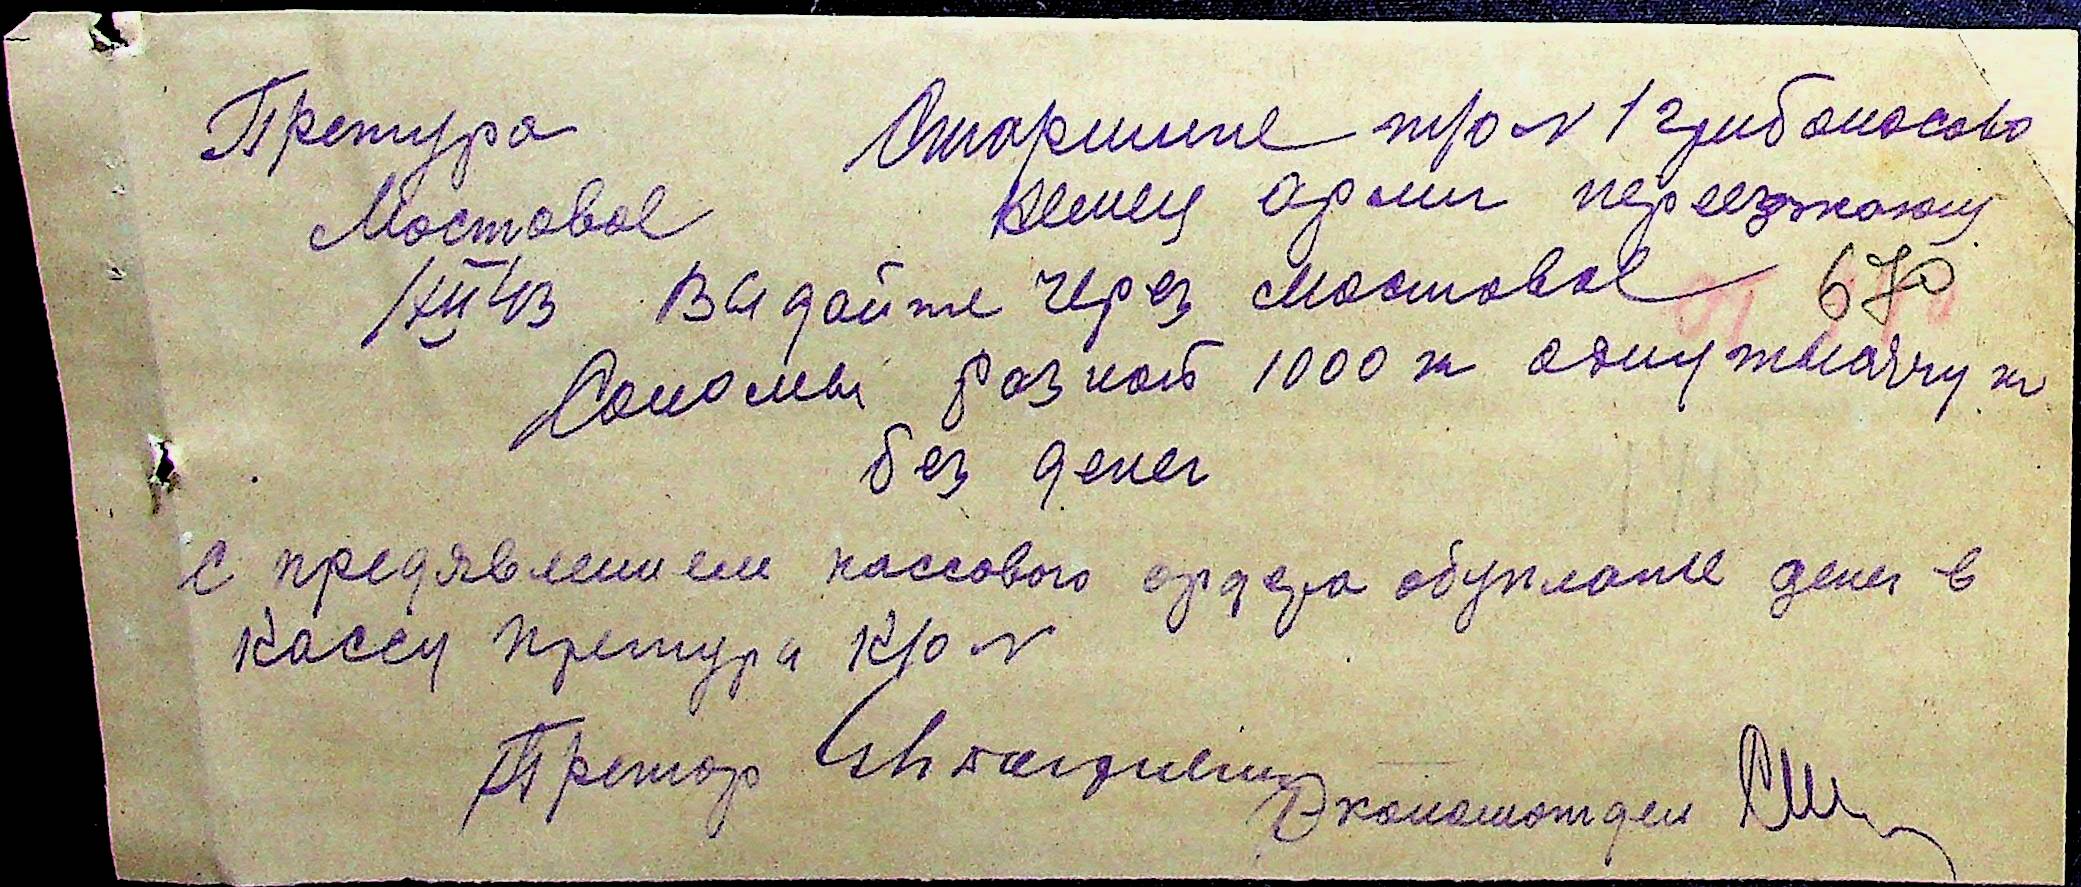 Претура Старшине т/о № 1 Грибоносово
Мостовое Немец армии переезжающ
1/XII 43 Выдайте через Мостовое 670
Соломы разной 1000 т одну тысячу т
без денег
С предявлением кассового ордера обуплате денег в
Кассу претура К/о №
Претор
Экономотдел